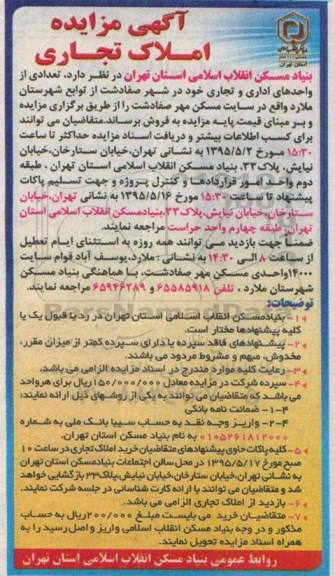 آگهی مزایده
املاک تجاری
بنیاد مسکن انقلاب اسلامی استان تهران در نظر دارد، تعدادی از
واحدهای اداری و تجاری خود در شهر صفادشت از توابع شهرستان
ملارد واقع در سایت مسکن مهر صفادشت را از طریق برگزاری مزایده
و بر مبنای قیمت پایه مزایده به فروش برساند.متقاضیان می توانند
برای کسب اطلاعات بیشتر و دریافت اسناد مزایده حداکثر تا ساعت
۱۵:۳۰ مورخ ۱۳۹۵/۵/۲ به نشانی تهران،خیابان ستارخان،خیابان
نیایش، پلاک۳۳، بنیاد مسکن انقلاب اسلامی استان تهران ، طبقه
دوم واحد امور قراردادها و کنترل پروژه و جهت تسلیم پاکات
پیشنهاد تا ساعت ۱۵:۳۰ مورخ ۱۳۹۵/۵/۱۶ به نشانی تهران،خیابان
ستارخان،خیابان نیایش،پلاک۳۳،بنیادمسکن انقلاب اسلامی استان
تهران،طبقه چهارم واحد حراست مراجعه نمایند.
ضمناً جهت بازدید می توانند همه روزه به استثنای ایام تعطیل
از ساعت ۸ الی ۱۴:۳۰ به نشانی : ملارد،یوسف آباد قوام سایت
۱۴۰۰۰واحدی مسکن مهر صفادشت، با هماهنگی بنیاد مسکن
شهرستان ملارد ، تلفن ۶۵۵۸۵۹۱۸ و ۶۵۹۴۶۲۸۹ مراجعه نمایند.
توضیحات:
۱- بنیادمسکن انقلاب اسلامی استان تهران در رد یا قبول یک یا
کلیه پیشنهادها مختار است.
۲- پیشنهادهای فاقد سپرده یا دارای سپرده کمتر از میزان مقرر،
مخدوش، مبهم و مشروط مردود می باشند.
۳- رعایت کلیه موارد مندرج در اسناد مزایده الزامی می باشد.
۴- سپرده شرکت در مزایده معادل ۱۵۰/۰۰۰/۰۰۰ریال برای هرواحد
می باشد که متقاضیان می توانند به یکی از روشهای ذیل ارائه نمایند:
۴-۱- ضمانت نامه بانکی
۴-۲- واریز وجه نقد به حساب سیبا بانک ملی به شماره
۰۱۰۵۲۶۱۸۱۲۰۰۰ به نام بنیاد مسکن استان تهران.
۵-کلیه پاکات حاوی پیشنهادهای متقاضیان خرید املاک تجاری در ساعت ۱۰
صبح مورخ ۱۳۹۵/۵/۱۷ در محل سالن اجتماعات بنیادمسکن استان تهران
به نشانی تهران،خیابان ستارخان،خیابان نیایش،پلاک۳۳ بازگشایی خواهد
شد و متقاضیان می توانند با ارائه کارت شناسایی در جلسه شرکت نمایند.
۶- بازدید از املاک تجاری الزامی می باشد.
۷- متقاضیان خرید می بایست مبلغ ۲۰۰/۰۰۰ریال به حساب
مذکور و در وجه بنیاد مسکن انقلاب اسلامی واریز و اصل رسید را به
همراه اسناد مزایده تحویل نمایند.
روابط عمومی بنیاد مسکن انقلاب اسلامی استان تهران